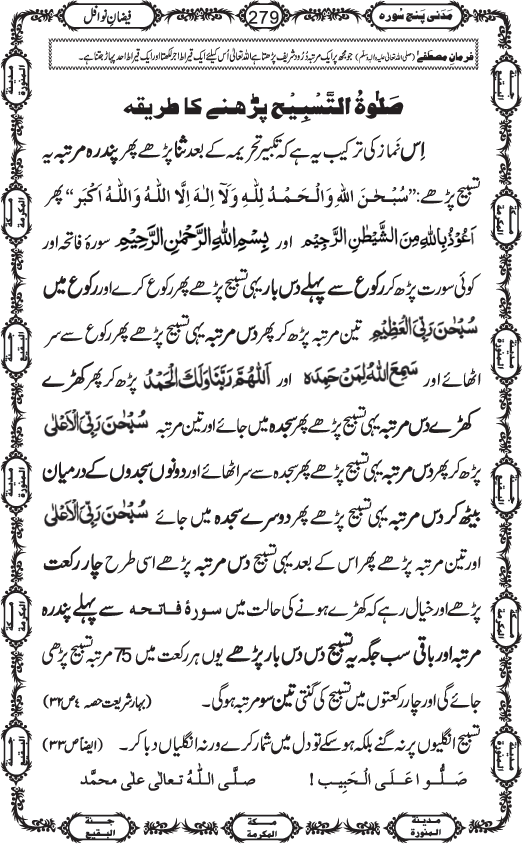 مَدَنی پنج سورہ
279
فیضانِ نوافل
فرمانِ مصطفےٰ (صلی اللہ تعالیٰ علیہ والہ وسلم) جو مجھ پر ایک مرتبہ دُرُود شریف پڑھتا ہے اللہ تعالیٰ اُس کیلئے ایک قیراط اجر لکھتا اور ایک قیراط احد پہاڑ جتنا ہے۔
صَلٰوۃُ التَّسْبِیْح پڑھنے کا طریقہ
اِس نَماز کی ترکیب یہ ہے کہ تکبیرِ تحریمہ کے بعد ثَنا پڑھے پھر پندرہ مرتبہ یہ
تسبیح پڑھے:”سُبْحٰنَ اللہِ وَالْحَمْدُ لِلّٰہِ وَلَآ اِلٰہَ اِلَّا اللہُ وَاللہُ اَکْبَر“ پھر
اَعُوْذُ بِاللہِ مِنَ الشَّیْطٰنِ الرَّجِیْم اور بِسْمِ اللہِ الرَّحْمٰنِ الرَّحِیْم سورۂ فاتحہ اور
کوئی سورت پڑھ کر رکوع سے پہلے دس بار یہی تسبیح پڑھے پھر رکوع کرے اور رکوع میں
سُبْحٰنَ رَبِّیَ الْعَظِیْم تین مرتبہ پڑھ کر پھر دس مرتبہ یہی تسبیح پڑھے پھر رکوع سے سر
اٹھائے اور سَمِعَ اللہُ لِمَنْ حَمِدَہ اور اَللّٰھُمَّ رَبَّنَا وَلَکَ الْحَمْدُ پڑھ کر پھر کھڑے
کھڑے دس مرتبہ یہی تسبیح پڑھے پھر سجدہ میں جائے اور تین مرتبہ سُبْحٰنَ رَبِّیَ الْاَعْلٰی
پڑھ کر پھر دس مرتبہ یہی تسبیح پڑھے پھر سجدہ سے سر اٹھائے اور دونوں سجدوں کے درمیان
بیٹھ کر دس مرتبہ یہی تسبیح پڑھے پھر دوسرے سجدہ میں جائے سُبْحٰنَ رَبِّیَ الْاَعْلٰی
اور تین مرتبہ پڑھے پھر اس کے بعد یہی تسبیح دس مرتبہ پڑھے اسی طرح چار رکعت
پڑھے اور خیال رہے کہ کھڑے ہونے کی حالت میں سورۂ فاتحہ سے پہلے پندرہ
مرتبہ اور باقی سب جگہ یہ تسبیح دس دس بار پڑھے یوں ہر رکعت میں 75 مرتبہ تسبیح پڑھی
جائے گی اور چار رکعتوں میں تسبیح کی گنتی تین سو مرتبہ ہوگی۔ (بہارِ شریعت حصہ ٤ ص ٣٢)
تسبیح انگلیوں پر نہ گنے بلکہ ہو سکے تو دل میں شمار کرے ورنہ انگلیاں دبا کر۔ (ایضاً ص ٣٣)
صَلُّوا عَلَی الْحَبِیب! صلَّی اللہُ تعالٰی علٰی محمَّد
مدینۃ المنورۃ
مکۃ المکرمۃ
جنۃ البقیع
مدینۃ المنورۃ
مکۃ المکرمۃ
جنۃ البقیع
جنۃ البقیع
مکۃ المکرمۃ
مدینۃ المنورۃ
جنۃ البقیع
مکۃ المکرمۃ
مدینۃ المنورۃ
مدینۃ المنورۃ
مکۃ المکرمۃ
جنۃ البقیع